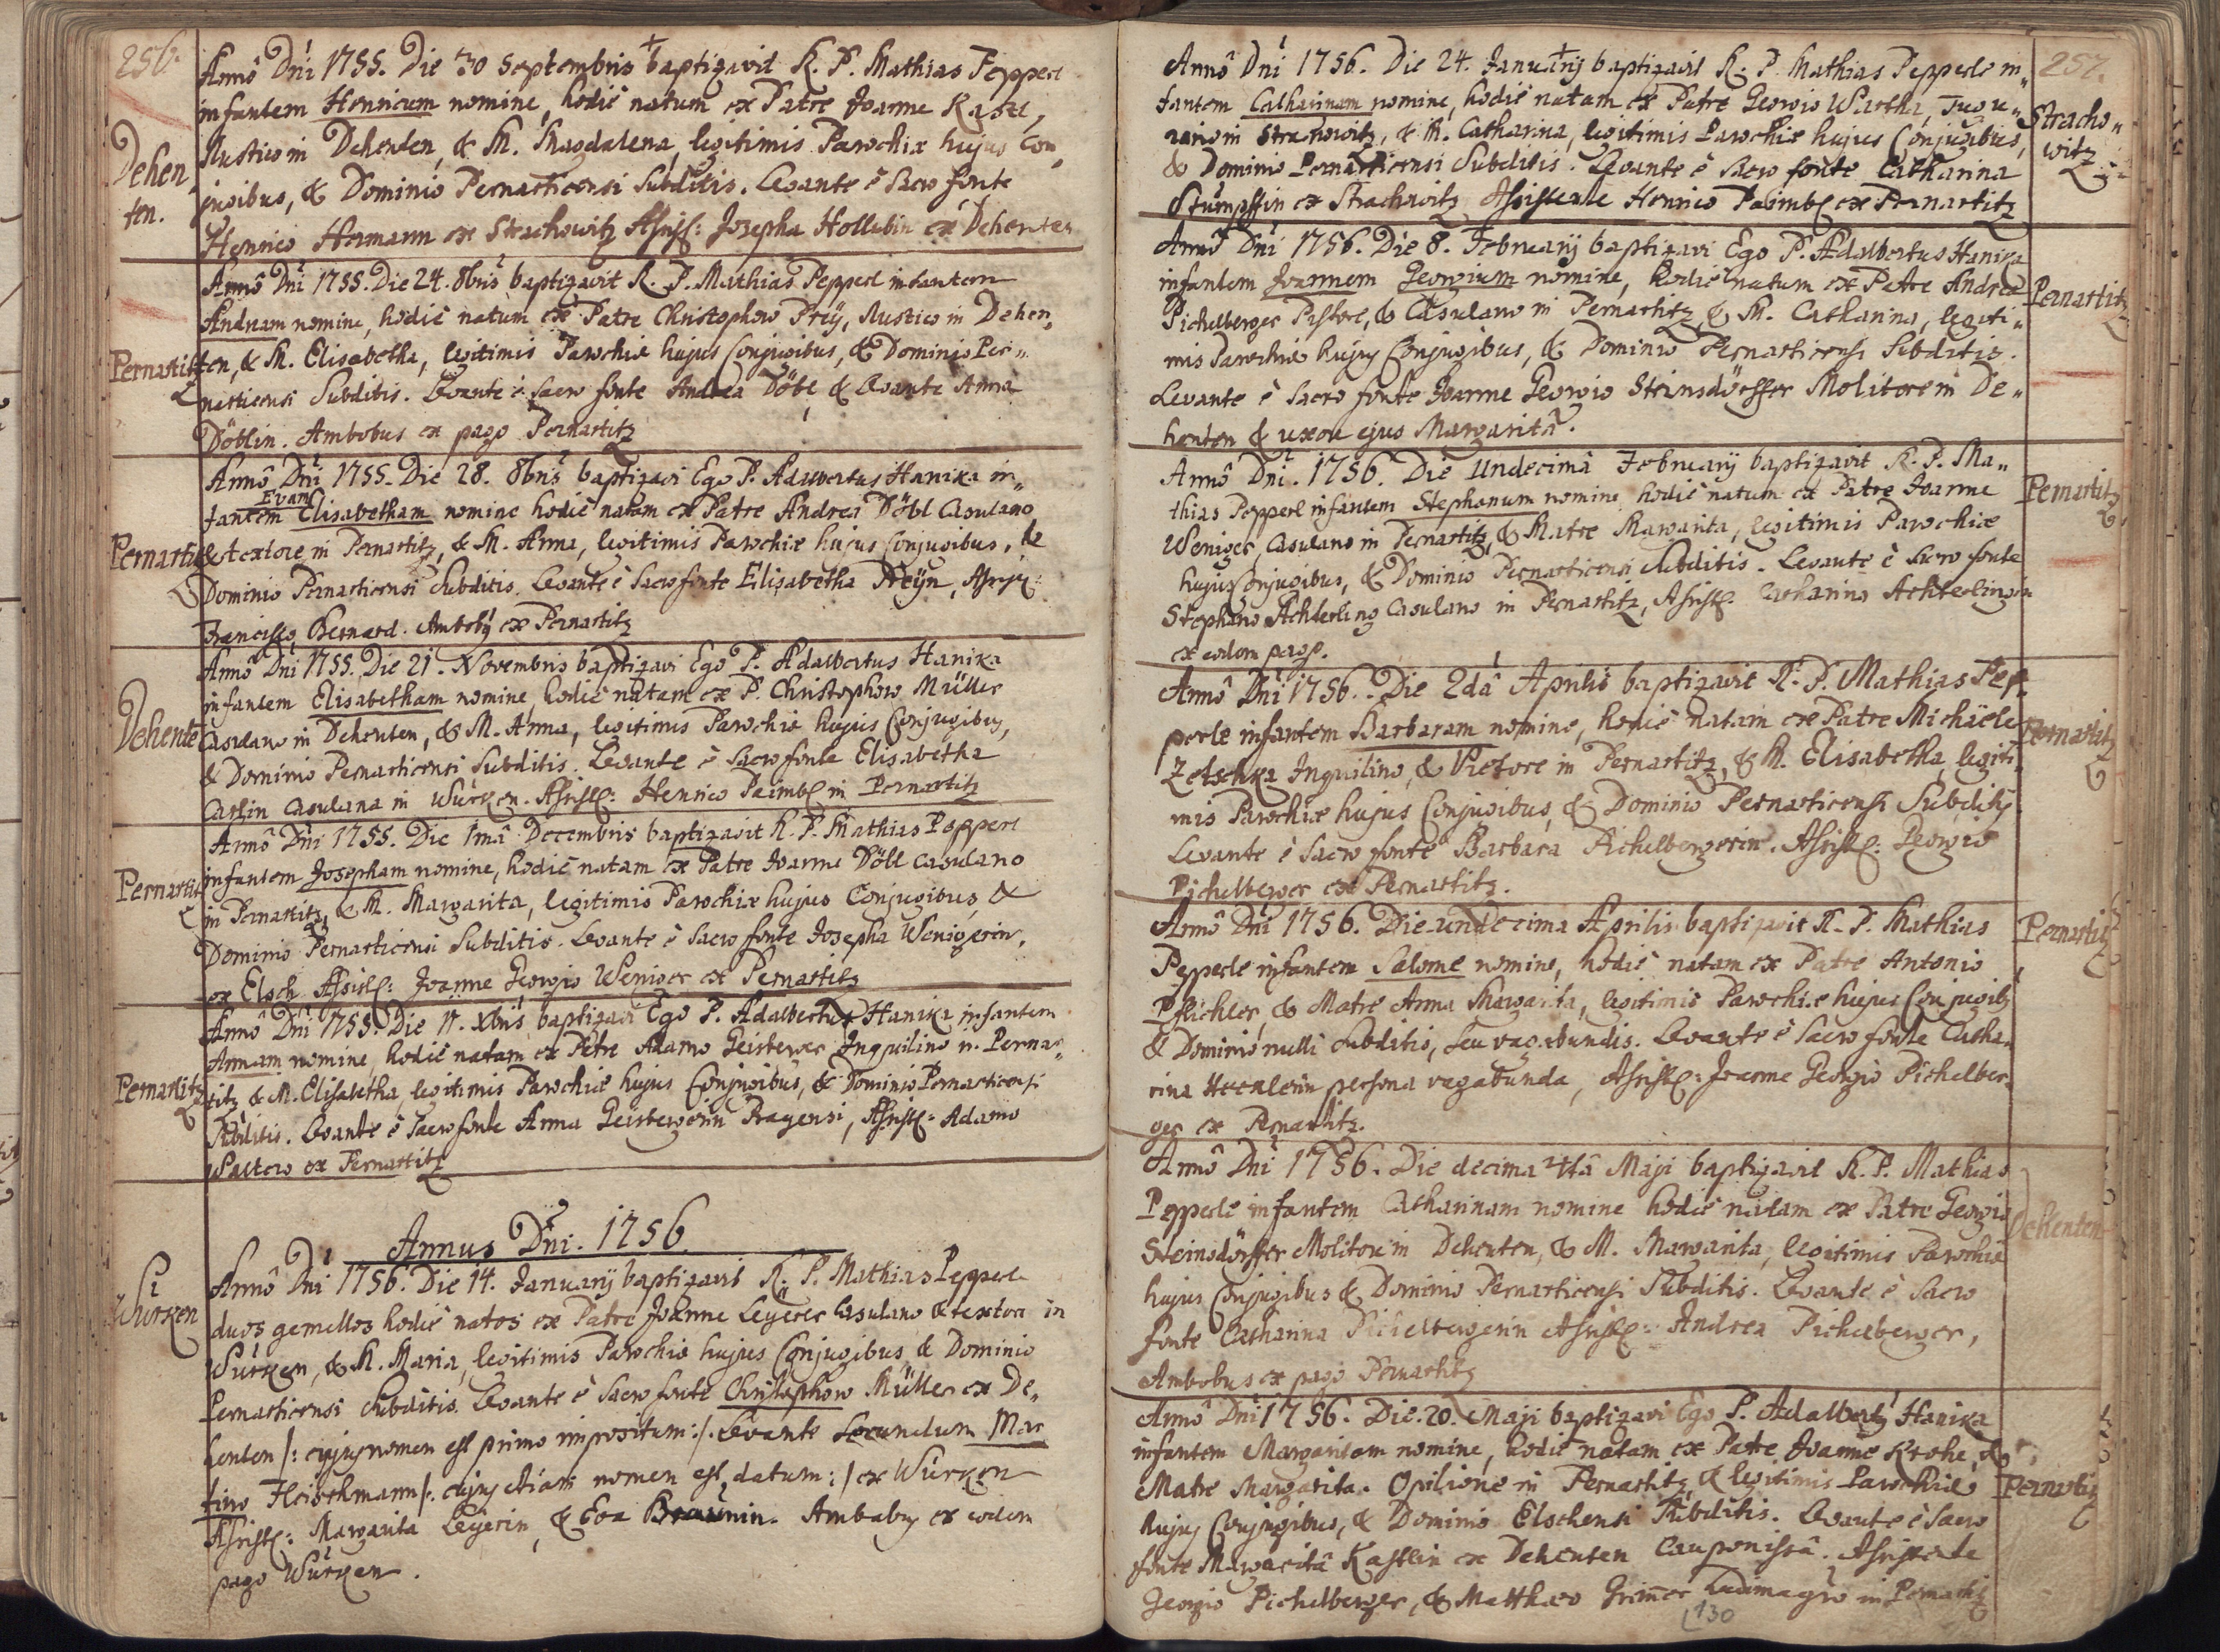 256.
Annô Dni 1755. Die 30 Septembris baptizavit R. P. Mathias Pepperl
infantem Henricum nomine, hodiè natum ex Patre Joanne Kastl,
Rustico in Dehenten, & M. Magdalena, legitimis Parochiæ hujus Con„
jugibus, & Dominio Pernarticensi Subditis. Levante è Sacro fonte
Henrico Hermann ex Strachowitz Assist: Josepha Hollubin ex Dehenten
Dehen„
ten.
Annô Dni 1755. Die 24. 8bris baptizavit R. P. Mathias Pepperl infantem
Andream nomine, hodiè natum ex Patre Christophoro Preÿ, Rustico in Dehen„
ten, & M. Elisabetha, legitimis Parochiæ hujus Conjugibus, & Dominio Per„
narticensi Subditis. Levante è Sacro fonte Andrea Döbl & Levante Anna
Döblin. Ambobus ex pago Pernartitz
Pernartitz
Annô Dni 1755. Die 28. 8bris baptizavi Ego P. Adalbertus Hanika in„
Evam
fantem Elisabetham nomine hodiè natam ex Patre Andrea Döbl Casulano
& textore in Pernartitz, & M. Anna, legitimis Parochiæ hujus Conjugibus, &
Dominio Pernarticensi Subditis. Levante è Sacro fonte Elisabetha Preÿn, Assist:
Francisco Bernard. Ambobus ex Pernartitz
Pernartitz
Annô Dni 1755. Die 21. Novembris baptizavi Ego P. Adalbertus Hanika
infantem Elisabetham nomine, hodiè natam ex P. Christophoro Müller
Casulano in Dehenten, & M. Anna, legitimis Parochiæ hujus Conjugibus,
& Dominio Pernarticensi Subditis. Levante è Sacro fonte Elisabetha
Carlin Casulana in Wurken. Assist: Henrico Paimbl in Pernartitz
Dehente
Annô Dni 1755. Die 1mâ Decembris baptizavit R. P. Mathias Pepperl
infantem Josepham nomine, hodiè natam ex Patre Joanne Döbl Casulano
in Pernartitz, & M. Margarita, legitimis Parochiæ hujus Conjugibus, &
Dominio Pernarticensi Subditis. Levante è Sacro fonte Josepha Wenigerin,
ex Elsch Assist: Joanne Georgio Weniger ex Pernartitz
Pernartitz
Annô Dni 1755. Die 17. Xbris baptizavi Ego P. Adalbertus Hanika infantem
Annam nomine, hodiè natam ex Patre Adamo Geisteger Inquilino in Pernar„
titz & M. Elisabetha, legitimis Parochiæ hujus Conjugibus, & Dominio Pernarticensi
Subditis. Levante è Sacro fonte Anna Geistegerin Pragensi, Assist: Adamo
Waltero ex Pernartitz
Pernartitz
Annus Dni. 1756.
Annô Dni 1756. Die 14. Januarij baptizavit R. P. Mathias Pepperl
duos gemellos hodiè natos ex Patre Joanne Leyerer Casulano & textori in
Wurken, & M. Maria, legitimis Parochiæ hujus Conjugibus & Dominio
Pernarticensi Subditis. Levante è Sacro fonte Christophoro Müller ex De„
henten /: cujus nomen est primo impositum :/. Levante Secundum Mar
tino Fleischmann /: cujus etiam nomen est datum :/ ex Wurken
Assist: Margarita Leyerin, & Eva Braunin. Ambabus ex eodem
pago Wurken.
Wurken
257.
Annô Dni 1756. Die 24. Januarij baptizavit R. P. Mathias Pepperle in„
fantem Catharinam nomine, hodiè natam ex Patre Georgio Wurtha, Tugu„
rario in Strachowitz, & M. Catharina, legitimis Parochiæ hujus Conjugibus,
& Dominio Pernarticensi Subditis. Levante è Sacro fonte Catharina
Stumpffin ex Strachowitz Assistente Henrico Paimbl ex Pernartitz
Stracho„
witz
Annô Dni 1756. Die 8. Februarij baptizavi Ego P. Adalbertus Hanika
infantem Joannem Georgium nomine, hodiè natum ex Patre Andrea
Pichelberger Pistore, & Casulano in Pernartitz & M. Catharina, legiti„
mis Parochiæ hujus Conjugibus, & Dominio Pernarticensi Subditis.
Levante è Sacro fonte Joanne Georgio Steinsdörffer Molitore in De„
henten & uxore ejus Margaritâ.
Pernartitz
Annô Dni. 1756. Die Undecimâ Februarij baptizavit R. P. Ma„
thias Pepperl infantem Stephanum nomine hodiè natum ex Patre Joanne
Weniger, Casulano in Pernartitz, & Matre Margarita, legitimis Parochiæ
hujus Conjugibus, & Dominio Pernarticensi Subditis. Levante è Sacro fonte
Stephano Achterling Casulano in Pernartitz, Assist: Catharina Achterlingin
ex eodem pago.
Pernartitz
Annô Dni 1756. Die 2dâ Aprilis baptizavit R. P. Mathias Pep„
perle infantem Barbaram nomine, hodiè natam ex Patre Michäele
Zetschka Inquilino, & Vietore in Pernartitz, & M. Elisabetha, legiti„
mis Parochiæ hujus Conjugibus, & Dominio Pernarticensi Subditis.
Levante è Sacro fonte Barbara Pichelbergerin. Assist: Georgio
Pichelberger ex Pernartitz.
Pernartitz
Annô Dni 1756. Die undecima Aprilis baptizavit R. P. Mathias
Pepperle infantem Salome nomine, hodiè natam ex Patre Antonio
Pflichler, & Matre Anna Margarita, legitimis Parochiæ hujus Conjugibus
& Dominio nulli Subditis, seu vagabundis. Levante è Sacro fonte Catha„
rina persona vagabunda, Assist: Joanne Georgio Pichelber„
ger ex Pernartitz.
Pernartitz
Annô Dni 1756. Die decima Maji baptizavit R. P. Mathias
Pepperle infantem Catharinam nomine hodiè natam ex Patre Georgio
Steinsdörffer Molitore in Dehenten, & M. Margarita, legitimis Parochiæ
hujus Conjugibus & Dominio Pernarticensi Subditis. Levante è Sacro
fonte Catharina Pichelbergerin Assist: Andrea Pichelberger,
Ambobus ex pago Pernartitz
Dehenten
Annô Dni 1756. Die 20. Maji baptizavi Ego P. Adalbertus Hanika
infantem Margaritam nomine, hodiè natam ex Patre Joanne Krohe, &
Matre Margarita. Opilione in Pernartitz, & legitimis Parochiæ
hujus Conjugibus, & Dominio Elschensi Subditis. Levante è Sacro
fonte Margaritâ Kastlin ex Dehenten Cauponissâ. Assistente
Georgio Pichelberger, & Matthæo Grimer Ludimagro in Pernartitz
Pernartitz
130